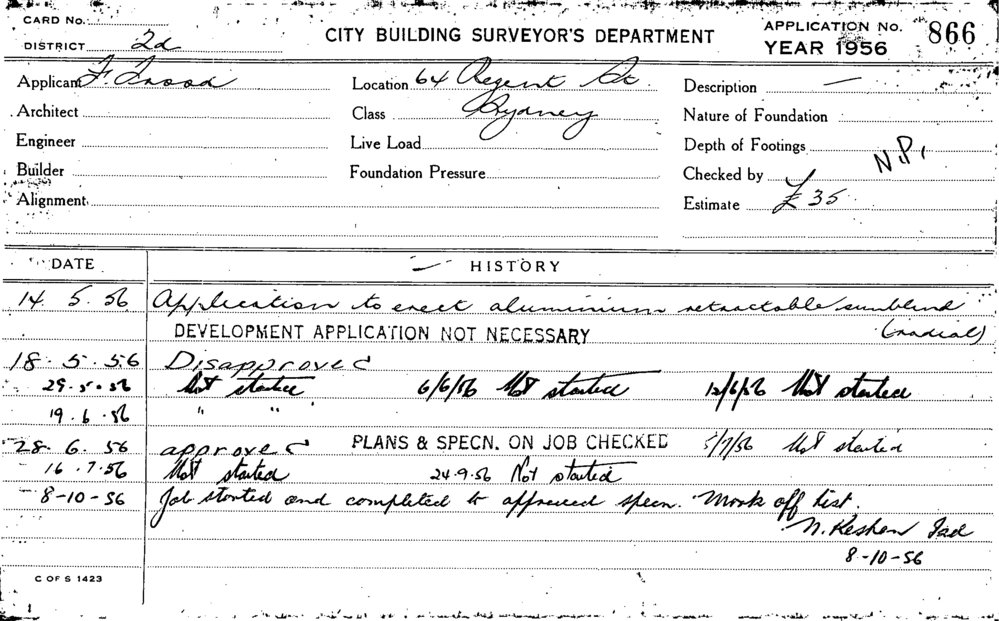 CARD No.
DISTRICT 2d
CITY BUILDING SURVEYOR'S DEPARTMENT
APPLICATION No. 866
YEAR 1956
Applicant F.
Location 64 Regent St.
Description —
Architect
Class Sydney
Nature of Foundation
Engineer
Live Load
Depth of Footings
N.P.
Builder
Foundation Pressure
Checked by
Alignment
Estimate £35
DATE
HISTORY
14. 5. 56 Application to erect aluminium retractable sunblind
(radial)
DEVELOPMENT APPLICATION NOT NECESSARY
18. 5. 56 Disapproved
29. 5. 56 Not started 6/6/56 Not started 12/6/56 Not started
19. 6. 56 " "
28. 6. 56 approved PLANS & SPECN. ON JOB CHECKED 5/7/56 Not started
16. 7. 56 Not started 24.9.56 Not started
8-10-56 Job started and completed to approved specn. Mark off list.
8-10-56
C OF S 1423